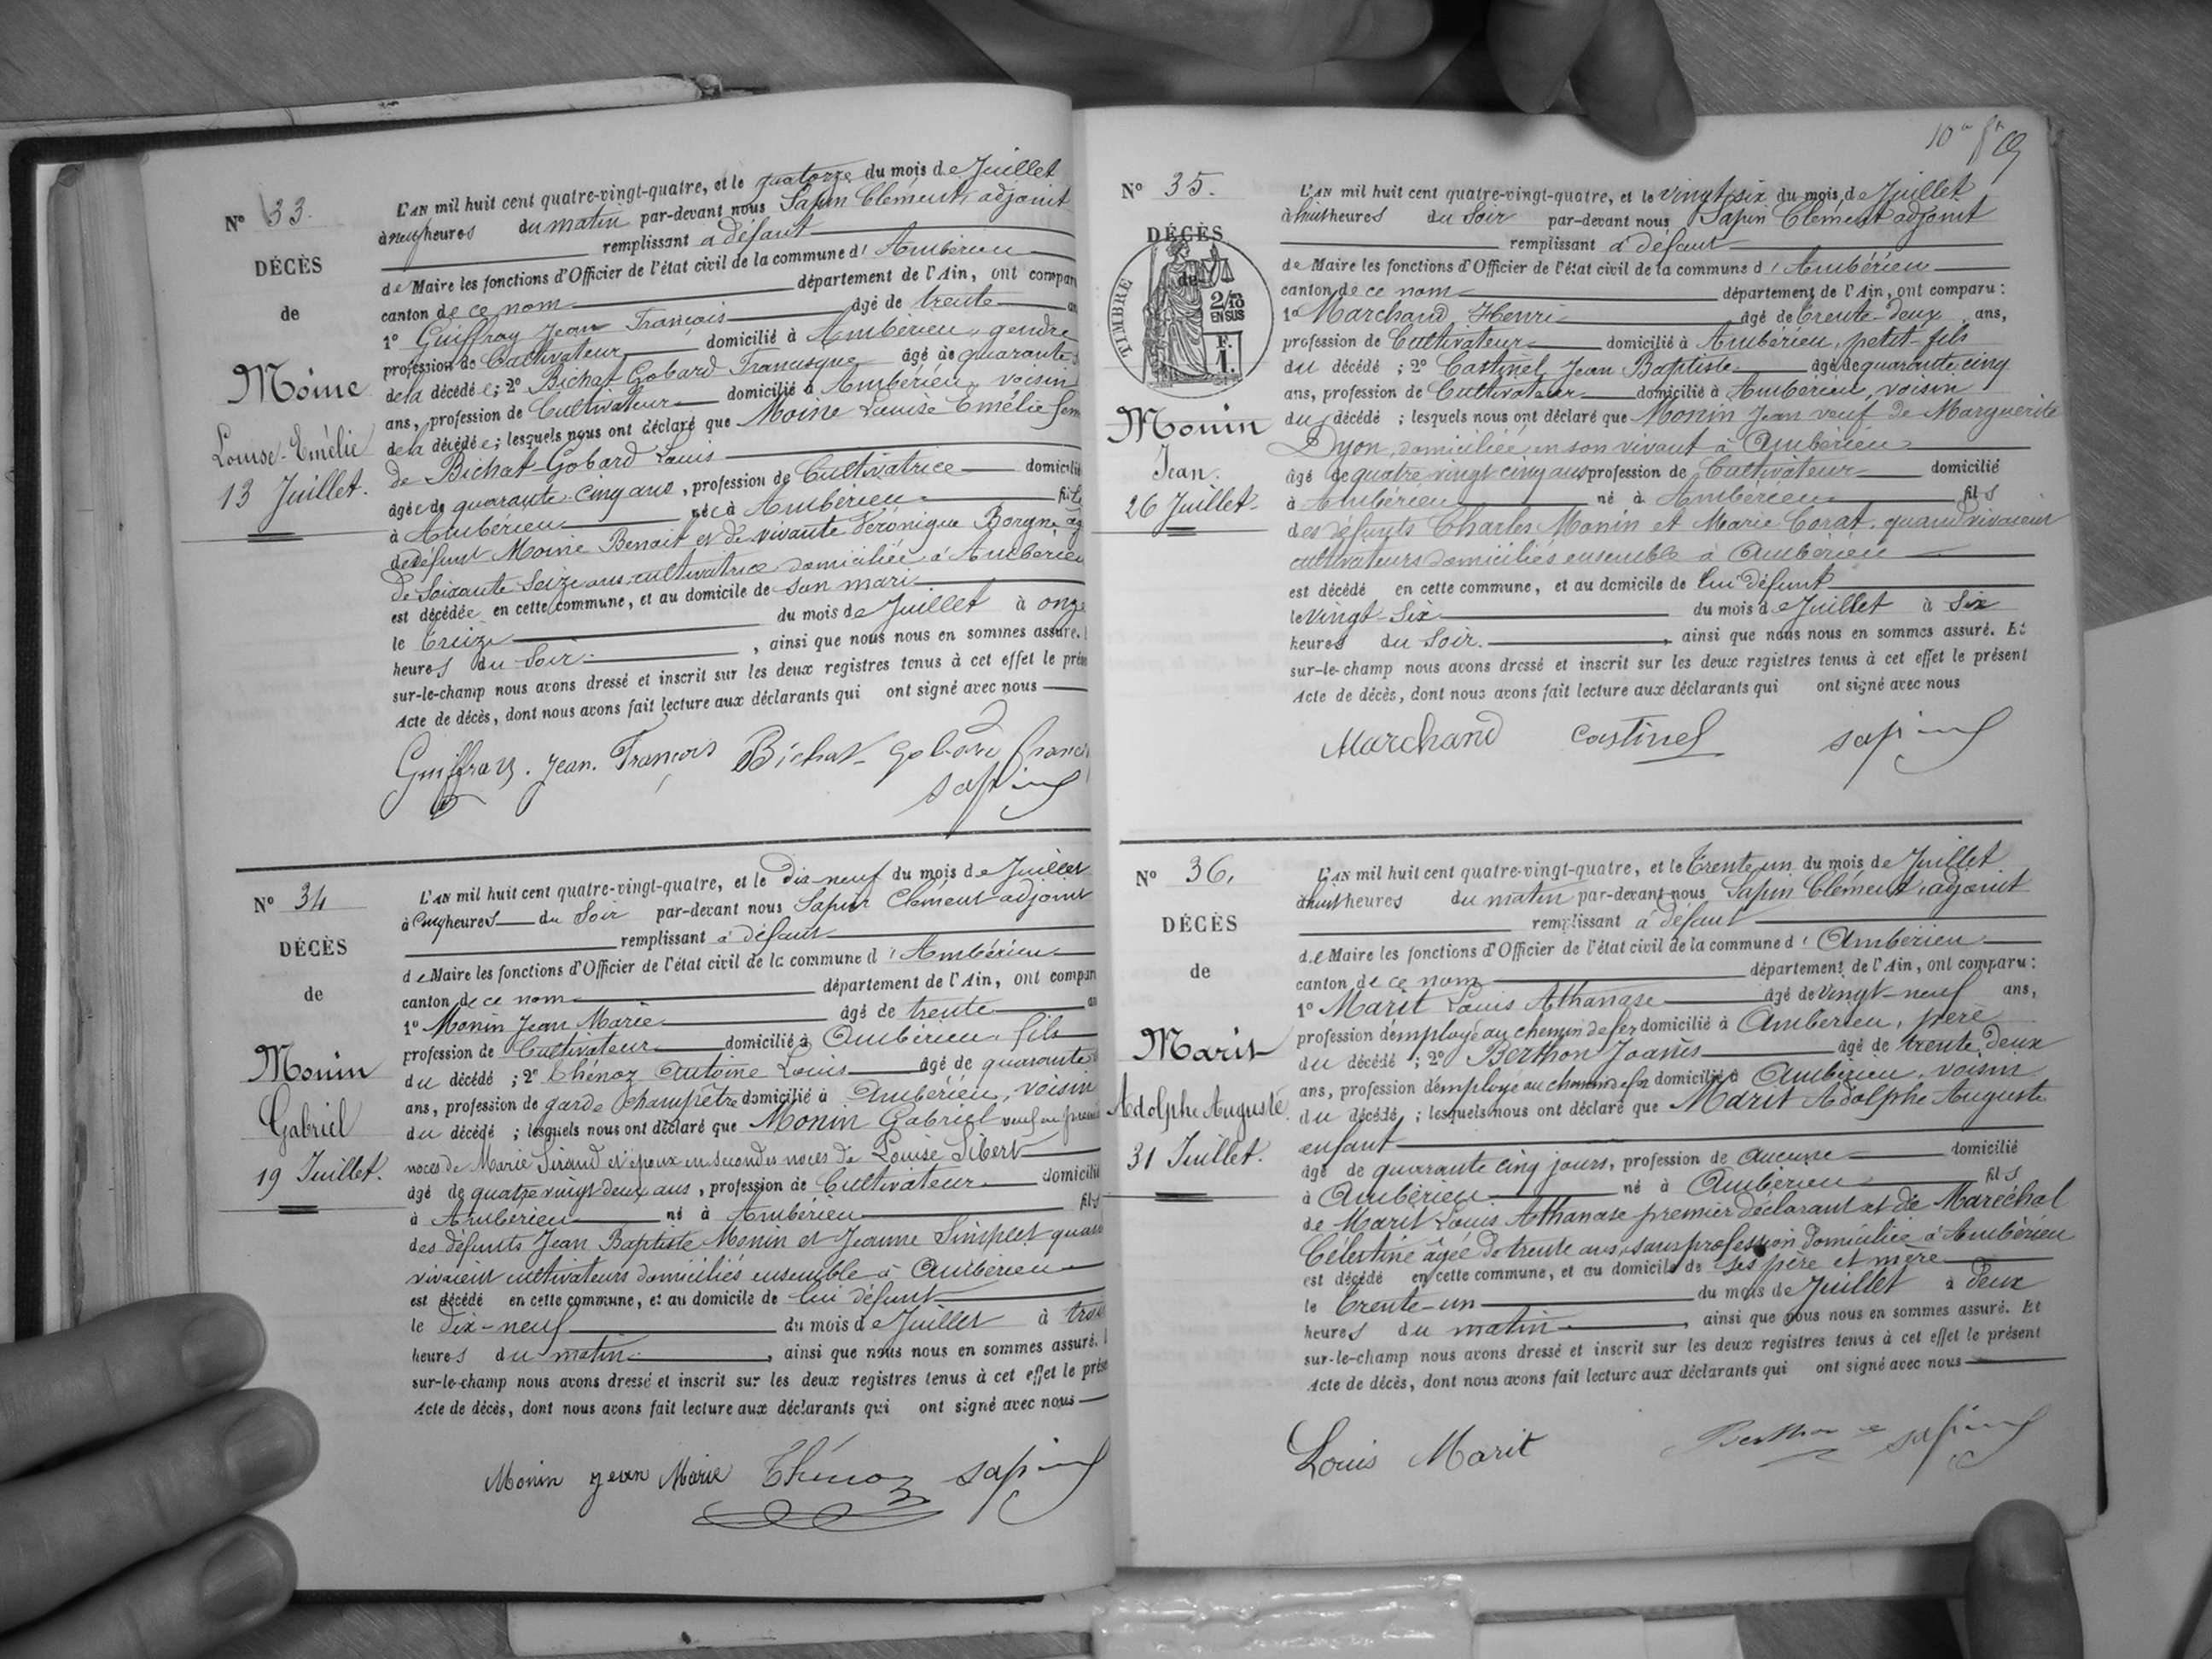 Nº 33.
DÉCÈS
de
Moine
Louise-Emélie
13 Juillet.
L'AN mil huit cent quatre-vingt-quatre, et le quatorze du mois de Juillet
à neuf heures du matin par-devant nous Sapin Clément, adjoint
remplissant à défaut
de Maire les fonctions d'Officier de l'état civil de la commune d'Ambérieu
canton de ce nom département de l'Ain, ont compar
1º Guiffray Jean François âgé de trente an
profession de Cultivateur domicilié à Ambérieu, gendre
de la décédée; 2º Bichat-Gobard Francisque âgé de quarante
ans, profession de Cultivateur domicilié à Ambérieu, voisin
de la décédée; lesquels nous ont déclaré que Moine Louise Emélie fem
de Bichat-Gobard Louis
âgée de quarante-cinq ans, profession de Cultivatrice domicilié
à Ambérieu née à Ambérieu fille
de défunt Moine Benoit et de vivante Véronique Borgne âg
de Soixante Seize ans cultivatrice domiciliée à Ambérieu
est décédée en cette commune, et au domicile de son mari
le treize du mois de Juillet à onze
heures du Soir, ainsi que nous nous en sommes assuré.
sur-le-champ nous avons dressé et inscrit sur les deux registres tenus à cet effet le prése
Acte de décès, dont nous avons fait lecture aux déclarants qui ont signé avec nous
Guiffray. Jean. François Bichat Gobard franci
Sapin
Nº 34
DÉCÈS
de
Monin
Gabriel
19 Juillet.
L'AN mil huit cent quatre-vingt-quatre, et le Dix-neuf du mois de Juillet
à Cinq heures du Soir par-devant nous Sapin Clément adjoint
remplissant à défaut
de Maire les fonctions d'Officier de l'état civil de la commune d'Ambérieu
canton de ce nom département de l'Ain, ont compar
1º Monin Jean Marie âgé de trente an
profession de Cultivateur domicilié à Ambérieu, fils
du décédé; 2º Thénoz Antoine Louis âgé de quarante
ans, profession de garde Champêtre domicilié à Ambérieu, voisin
du décédé; lesquels nous ont déclaré que Monin Gabriel veuf en premiè
noces de Marie Siraud et époux en secondes noces de Louise Sibert
âgé de quatre vingt deux ans, profession de Cultivateur domicilié
à Ambérieu né à Ambérieu fils
des défunts Jean Baptiste Monin et Jeanne Simplet quand
vivaient cultivateurs domiciliés ensemble à Ambérieu
est décédé en cette commune, et au domicile de lui défunt
le Dix-neuf du mois de Juillet à trois
heures du matin, ainsi que nous nous en sommes assuré.
sur-le-champ nous avons dressé et inscrit sur les deux registres tenus à cet effet le prése
Acte de décès, dont nous avons fait lecture aux déclarants qui ont signé avec nous
Monin Jean Marie Thénoz Sapin
Nº 35.
DÉCÈS
de
TIMBRE
2/10
EN SUS
F.
1.
Monin
Jean.
26 Juillet.
L'AN mil huit cent quatre-vingt-quatre, et le vingt-six du mois de Juillet
à huit heures du Soir par-devant nous Sapin Clément adjoint
remplissant à défaut
de Maire les fonctions d'Officier de l'état civil de la commune d'Ambérieu
canton de ce nom département de l'Ain, ont comparu:
1º Marchand Henri âgé de trente-deux ans,
profession de Cultivateur domicilié à Ambérieu, petit-fils
du décédé; 2º Castinel Jean Baptiste âgé de quarante cinq
ans, profession de Cultivateur domicilié à Ambérieu, voisin
du décédé; lesquels nous ont déclaré que Monin Jean veuf de Marguerite
Dyon, domiciliée en son vivant à Ambérieu
âgé de quatre vingt cinq ans profession de Cultivateur domicilié
à Ambérieu né à Ambérieu fils
des défunts Charles Monin et Marie Corat, quand vivaient
cultivateurs domiciliés ensemble à Ambérieu
est décédé en cette commune, et au domicile de lui défunt
le vingt-Six du mois de Juillet à Six
heures du Soir, ainsi que nous nous en sommes assuré. Et
sur-le-champ nous avons dressé et inscrit sur les deux registres tenus à cet effet le présent
Acte de décès, dont nous avons fait lecture aux déclarants qui ont signé avec nous
Marchand Castinel Sapin
Nº 36.
DÉCÈS
de
Marit
Adolphe Auguste
31 Juillet.
L'AN mil huit cent quatre-vingt-quatre, et le trente un du mois de Juillet
à huit heures du matin par-devant nous Sapin Clément adjoint
remplissant à défaut
de Maire les fonctions d'Officier de l'état civil de la commune d'Ambérieu
canton de ce nom département de l'Ain, ont comparu:
1º Marit Louis Athanase âgé de vingt-neuf ans,
profession d'employé au chemin de fer domicilié à Ambérieu, père
du décédé; 2º Berthon Joanès âgé de trente deux
ans, profession d'employé au chemin de fer domicilié à Ambérieu, voisin
du décédé; lesquels nous ont déclaré que Marit Adolphe Auguste
enfant
âgé de quarante cinq jours, profession de aucune domicilié
à Ambérieu né à Ambérieu fils
de Marit Louis Athanase premier déclarant et de Maréchal
Célestine âgée de trente ans, sans profession domiciliée à Ambérieu
est décédé en cette commune, et au domicile de ses père et mère
le trente-un du mois de Juillet à deux
heures du matin, ainsi que nous nous en sommes assuré. Et
sur-le-champ nous avons dressé et inscrit sur les deux registres tenus à cet effet le présent
Acte de décès, dont nous avons fait lecture aux déclarants qui ont signé avec nous
Louis Marit Berthon Sapin